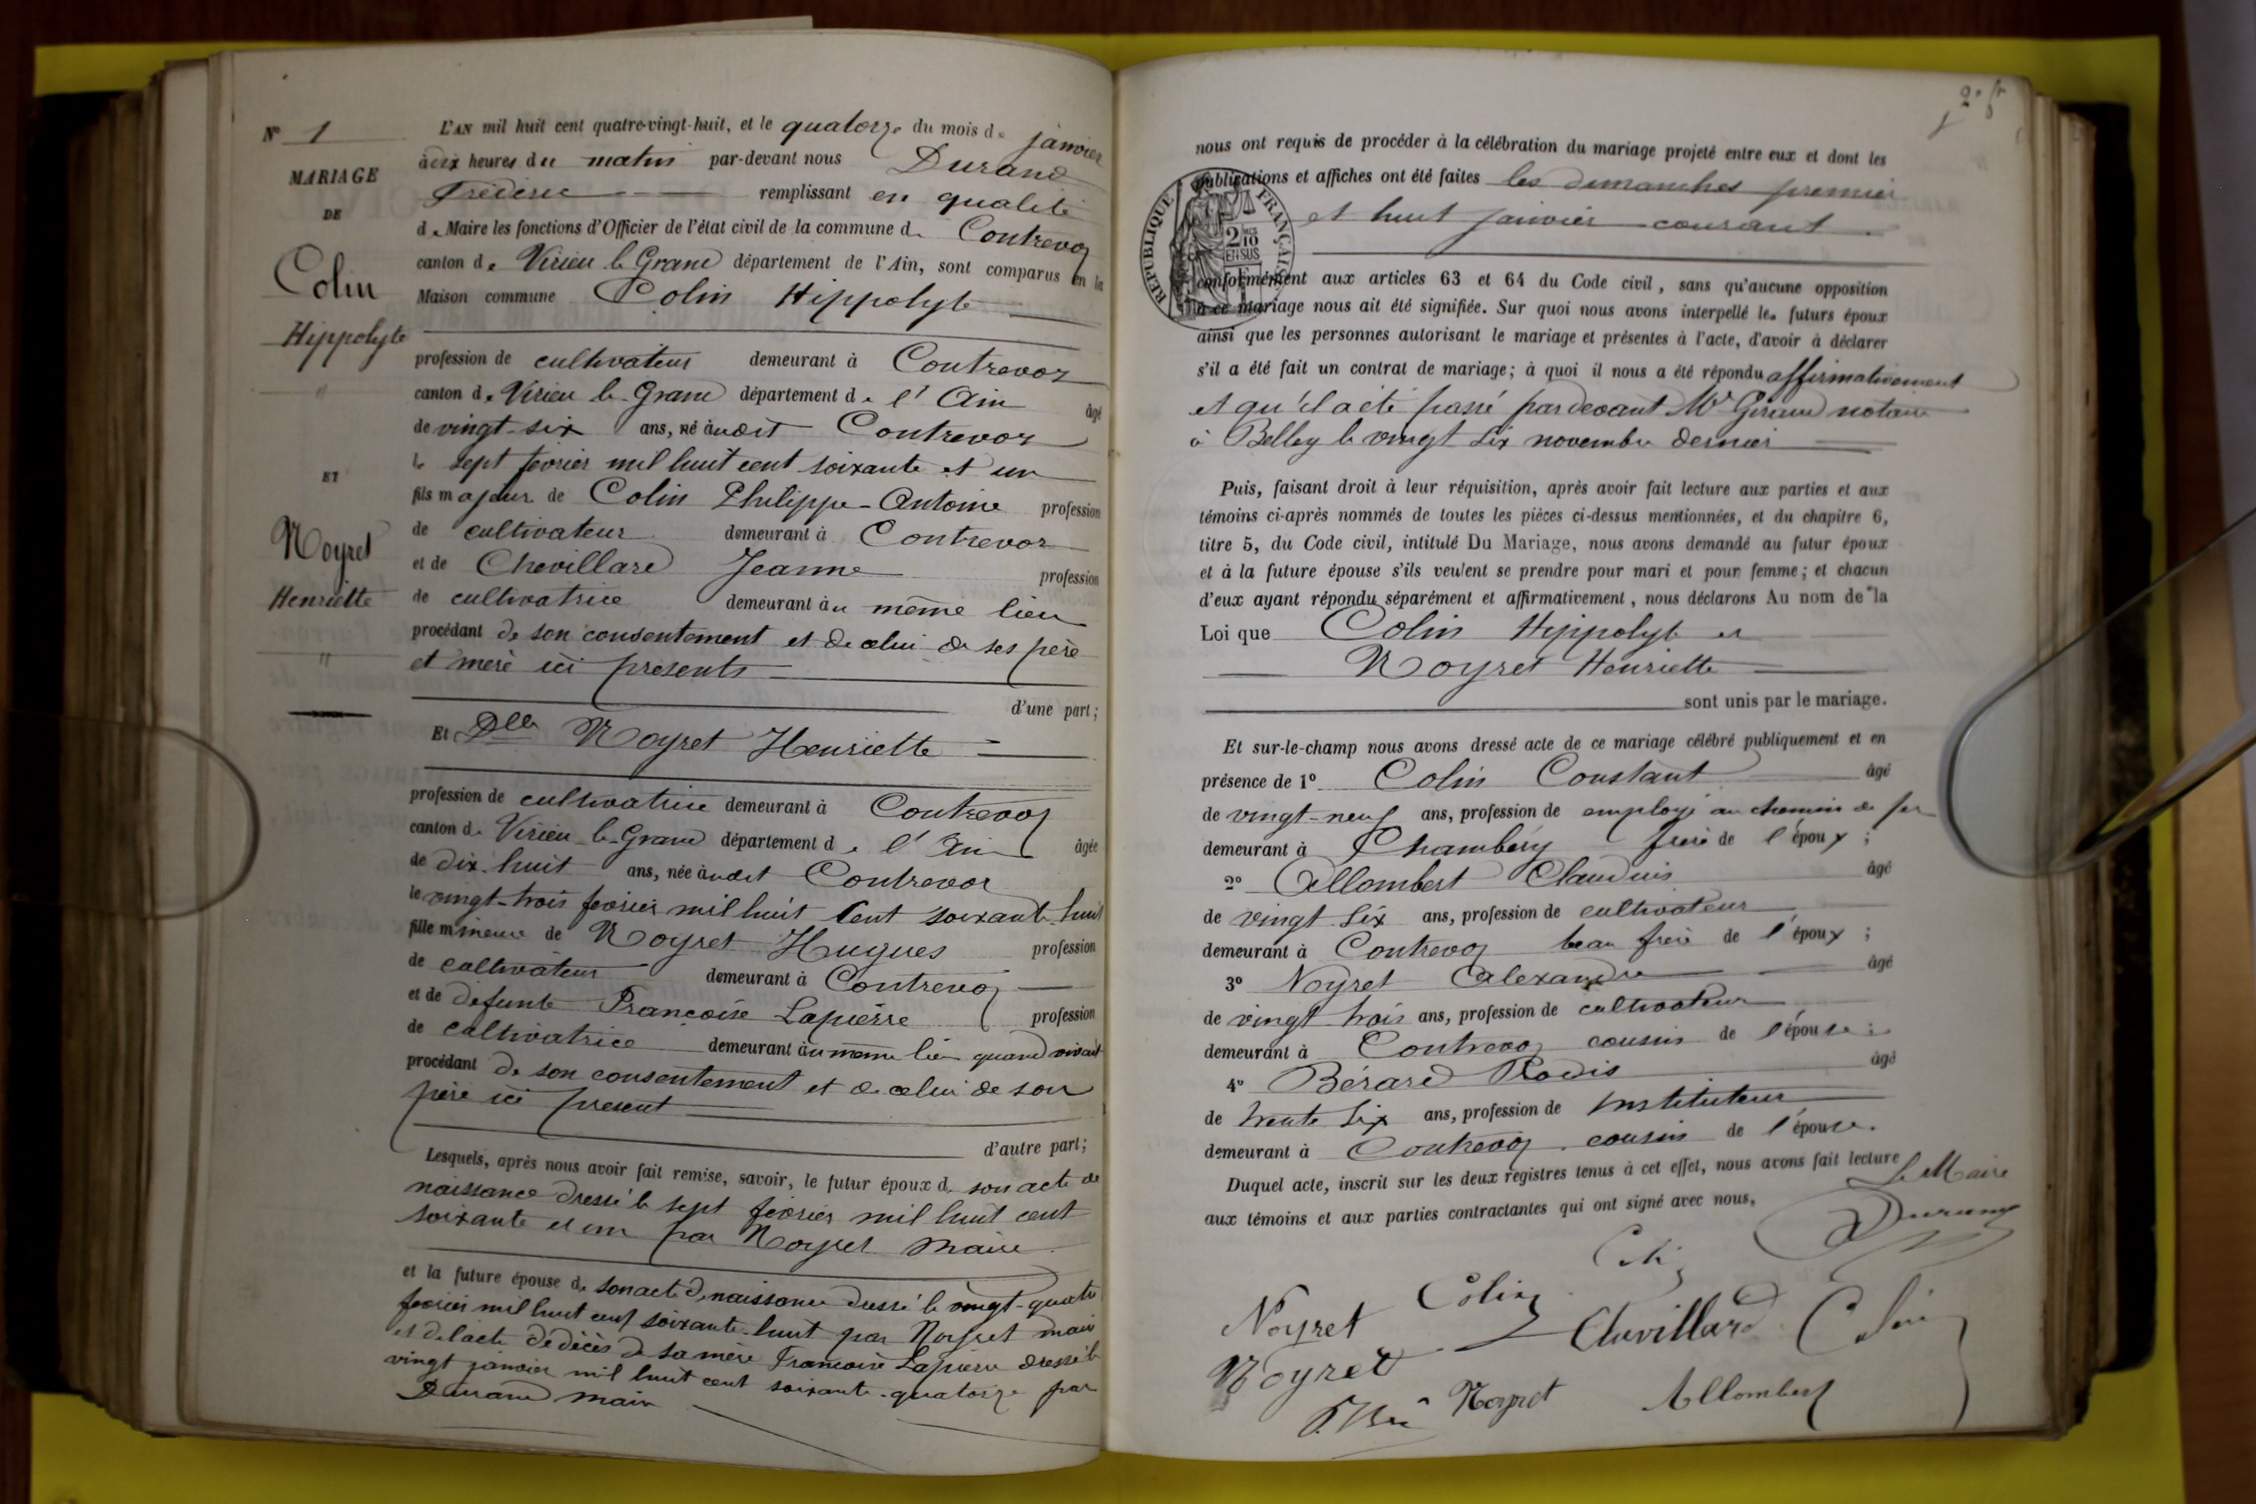 N° 1
MARIAGE
DE
Colin
Hippolyte
"
ET
Noyret
Henriette
"
L'AN mil huit cent quatre-vingt-huit, et le quatorze du mois de janvier
à dix heures du matin par-devant nous Durand
Frédéric remplissant en qualité
de Maire les fonctions d'Officier de l'état civil de la commune de Contrevoz
canton de Virieu le Grand département de l'Ain, sont comparus en la
Maison commune Colin Hippolyte
profession de cultivateur demeurant à Contrevoz
canton de Virieu le Grand département de l'Ain âgé
de vingt-six ans, né àudit Contrevoz
le sept fevrier mil huit cent soixante et un
fils majeur de Colin Philippe-Antoine profession
de cultivateur demeurant à Contrevoz
et de Chevillard Jeanne profession
de cultivatrice demeurant au même lieu
procédant de son consentement et de celui de ses père
et mère ici presents
d'une part;
Et Dlle Noyret Henriette
profession de cultivatrice demeurant à Contrevoz
canton de Virieu le Grand département de l'Ain âgée
de dix-huit ans, née àudit Contrevoz
le vingt-trois fevrier mil huit cent soixante huit
fille mineure de Noyret Hugues profession
de cultivateur demeurant à Contrevoz
et de defunte Françoise Lapierre profession
de cultivatrice demeurant au même lieu quand vivait
procédant de son consentement et de celui de son
père ici present
d'autre part;
Lesquels, après nous avoir fait remise, savoir, le futur époux de son acte de
naissance dressé le sept fevrier mil huit cent
soixante et un par Noyret maire
et la future épouse de son acte de naissance dressé le vingt-quatre
fevrier mil huit cent soixante-huit par Noyret maire
et de l'acte de décès de sa mère Françoise Lapierre dressé le
vingt janvier mil huit cent soixante-quatorze par
Durand maire
nous ont requis de procéder à la célébration du mariage projeté entre eux et dont les
publications et affiches ont été faites les dimanches premier
et huit janvier courant
RÉPUBLIQUE FRANÇAISE
2/10
EN SUS
conformément aux articles 63 et 64 du Code civil, sans qu'aucune opposition
à ce mariage nous ait été signifiée. Sur quoi nous avons interpellé les futurs époux
ainsi que les personnes autorisant le mariage et présentes à l'acte, d'avoir à déclarer
s'il a été fait un contrat de mariage; à quoi il nous a été répondu affirmativement
et qu'il a été passé par devant Me Giraud notaire
à Belley le vingt six novembre dernier
Puis, faisant droit à leur réquisition, après avoir fait lecture aux parties et aux
témoins ci-après nommés de toutes les pièces ci-dessus mentionnées, et du chapitre 6,
titre 5, du Code civil, intitulé Du Mariage, nous avons demandé au futur époux
et à la future épouse s'ils veulent se prendre pour mari et pour femme; et chacun
d'eux ayant répondu séparément et affirmativement, nous déclarons Au nom de la
Loi que Colin Hippolyte et
Noyret Henriette
sont unis par le mariage.
Et sur-le-champ nous avons dressé acte de ce mariage célébré publiquement et en
présence de 1° Colin Constant âgé
de vingt-neuf ans, profession de employé au chemin de fer
demeurant à Chambéry frère de l'époux;
2° Allombert Claudius âgé
de vingt six ans, profession de cultivateur
demeurant à Contrevoz beau frère de l'époux;
3° Noyret Alexandre âgé
de vingt trois ans, profession de cultivateur
demeurant à Contrevoz cousin de l'épouse;
4° Bérard Rodis âgé
de trente six ans, profession de Instituteur
demeurant à Contrevoz cousin de l'épouse.
Duquel acte, inscrit sur les deux registres tenus à cet effet, nous avons fait lecture
aux témoins et aux parties contractantes qui ont signé avec nous,
Le Maire
Durand
Colin
Noyret
Chevillard
Colin
Noyret
Noyret
Allombert